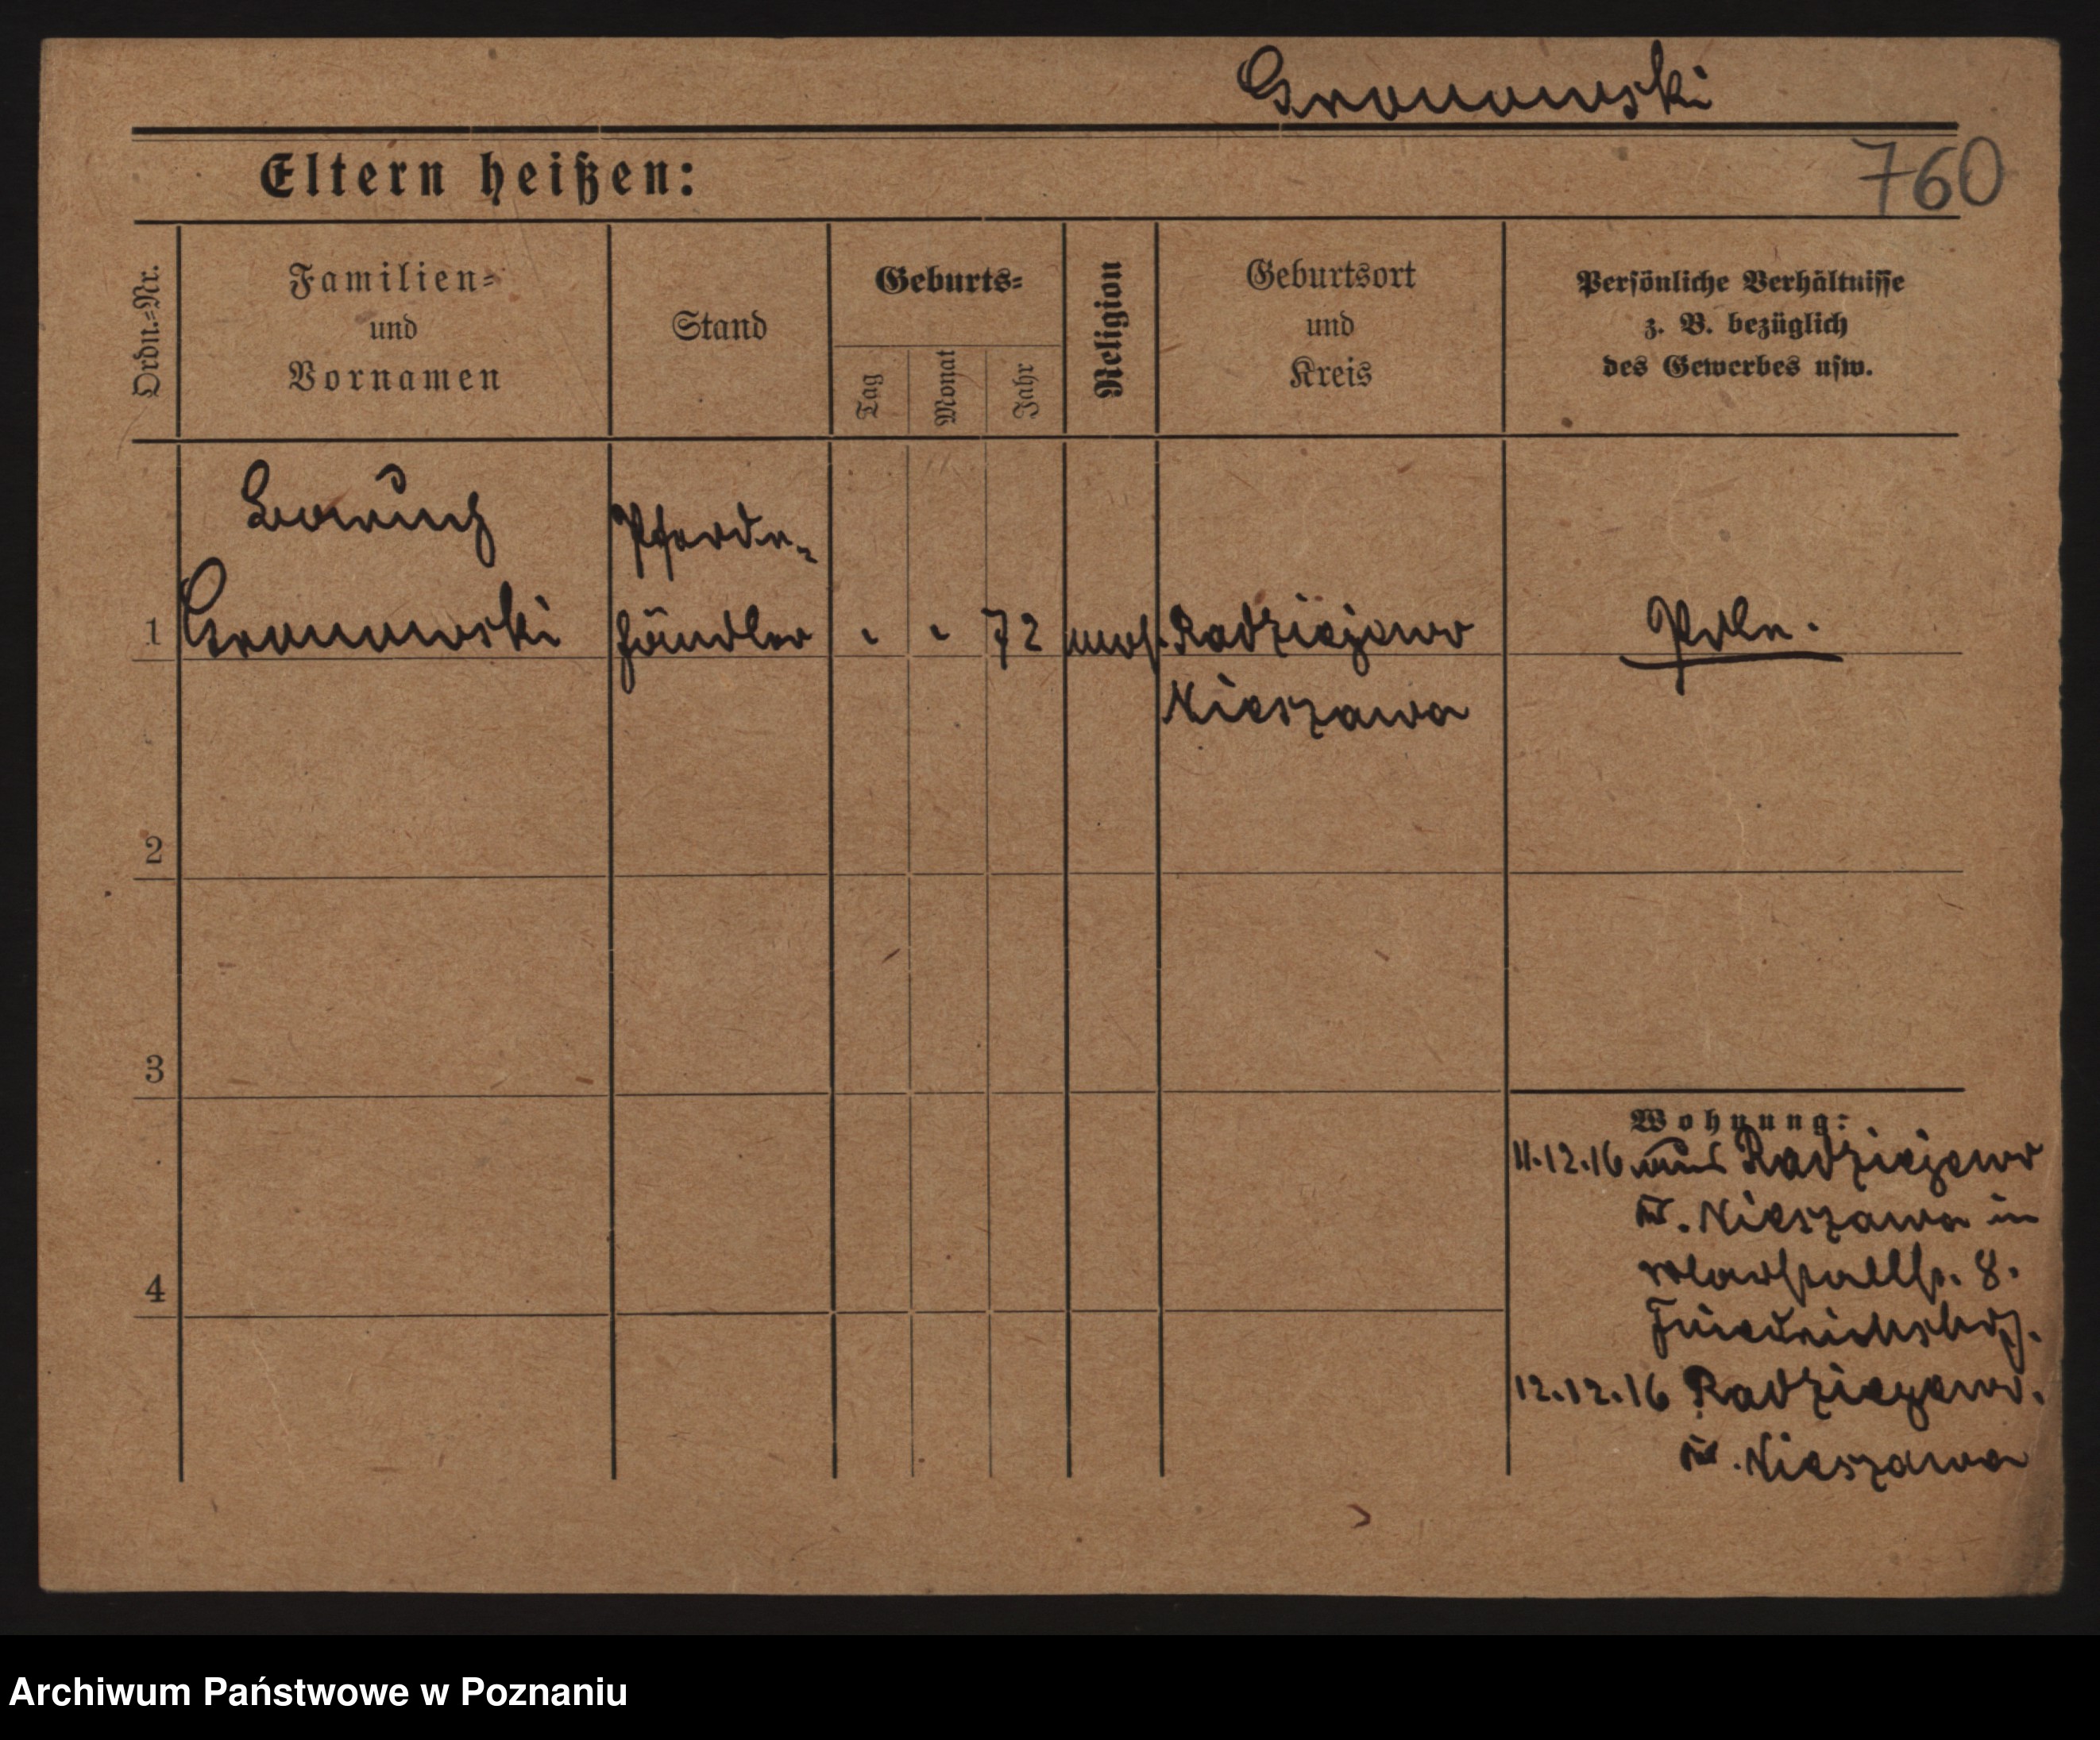 Gronowski
760
Eltern heißen:
Ordn.-Nr.
Familien-
und
Vornamen
Stand
Geburts-
Tag
Monat
Jahr
Religion
Geburtsort
und
Kreis
Persönliche Verhältnisse
z. B. bezüglich
des Gewerbes usw.
Baruch
Pferde-
1 Gronowski händler - - 72 mos. Radziejewo Pole.
Nieszawa
2
3
4
Wohnung:
11.12.16 aus Radziejewo
Kr. Nieszawa in
Marstallstr. 8.
Friedrichshof.
12.12.16 Radziejewo.
Kr. Nieszawa
Archiwum Państwowe w Poznaniu